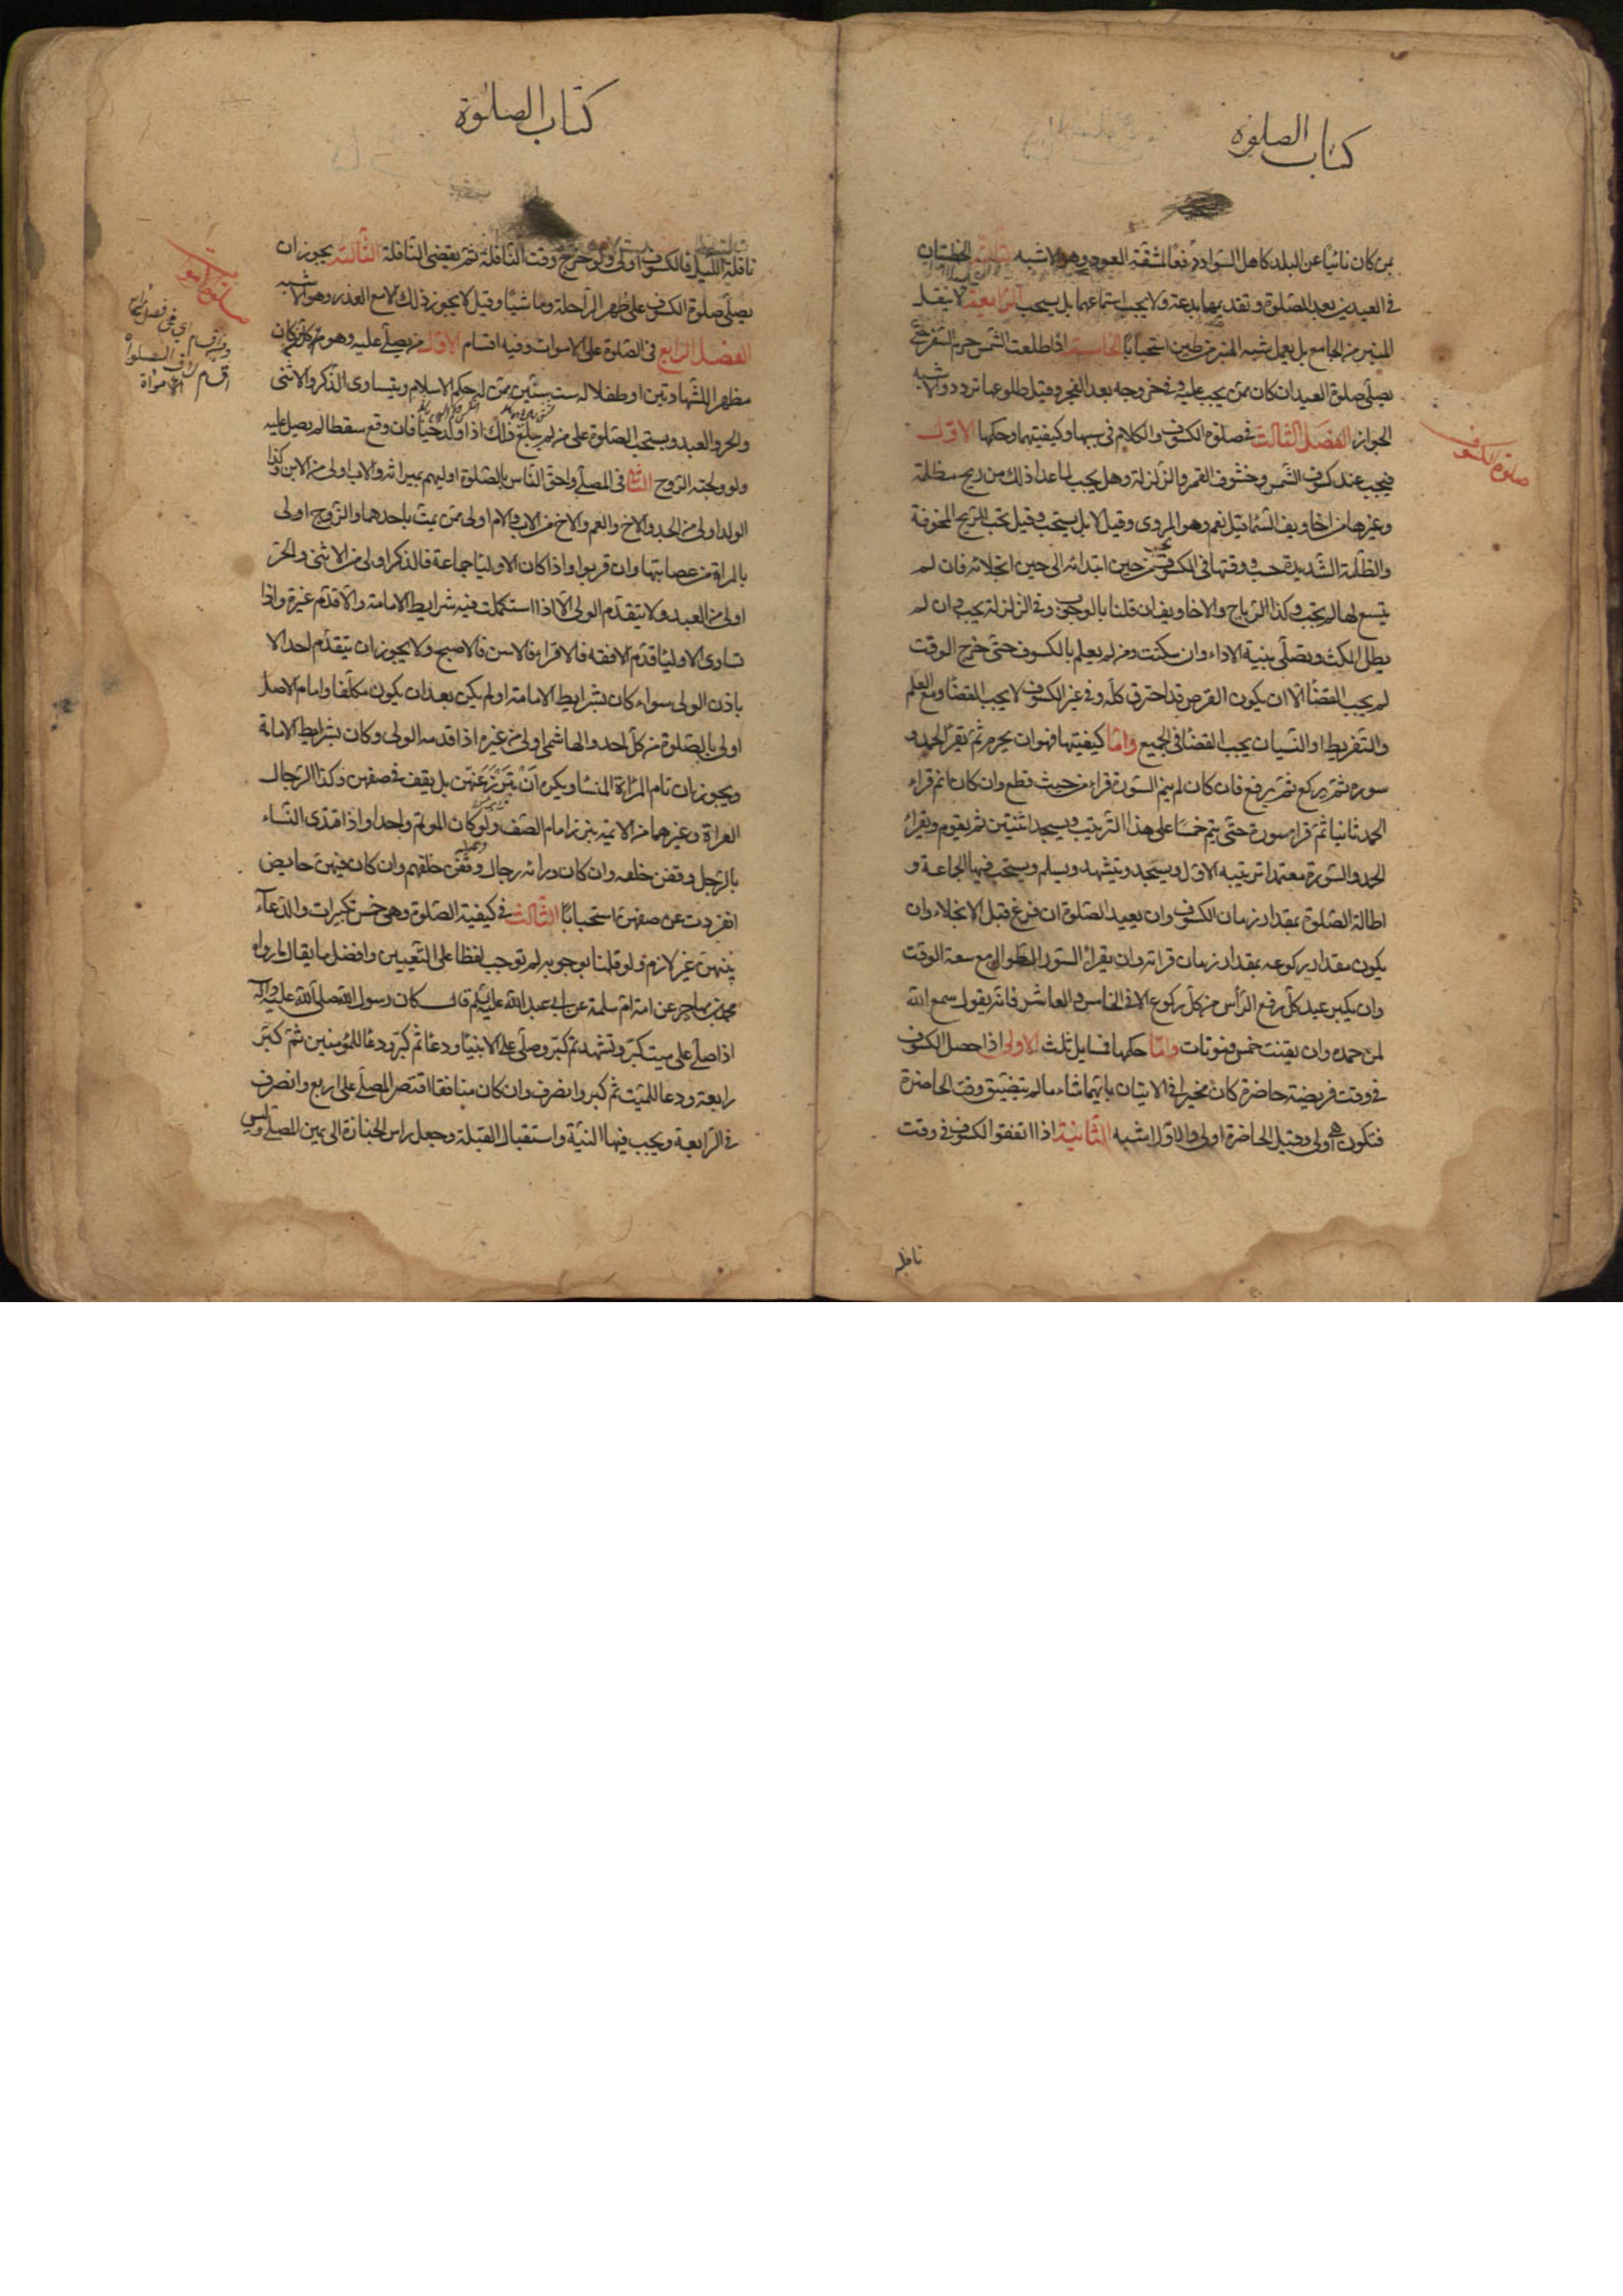 كتاب الصلوة
بمن كان نائيا عن البلد كاهل السواد دفعا لمشقة العود وهو الاشبه الثالثة الخطبتان
في العيدين بعد الصلوة وتقديمهما بدعة ولا يجب استماعهما بل يستحب الرابعة لا ينقل
المنبر من الجامع بل يعمل شبه المنبر من طين استحبابا الخامسة اذا طلعت الشمس حرم السفر حتى
يصلى صلوة العيد ان كان ممن يجب عليه وفي خروجه بعد الفجر وقبل طلوعها تردد والاشبه
الجواز الفصل الثالث في صلوة الكسوف والكلام في سببها وكيفيتها وحكمها الاول
فيجب عند كسوف الشمس وخسوف القمر والزلزلة وهل يجب لما عدا ذلك من ريح مظلمة
وغيرها من اخاويف السماء قيل نعم وهو المروي وقيل لا بل يستحب وقيل تجب للريح المخوفة
والظلمة الشديدة حسب ووقتها في الكسوف من حين ابتدائه الى حين انجلائه فان لم
يتسع لها لم يجب وكذا الرياح والاخاويف ان قلنا بالوجوب وفي الزلزلة يجب وان لم
يطل المكث ويصلى بنية الاداء وان سكنت ومن لم يعلم بالكسوف حتى خرج الوقت
لم يجب القضاء الا ان يكون القرص قد احترق كله وفي غير الكسوف لا يجب القضاء ومع العلم
والتفريط او النسيان يجب القضاء في الجميع واما كيفيتها فهو ان يحرم ثم يقرأ الحمد و
سورة ثم يركع ثم يرفع فان كان لم يتم السورة قراء من حيث قطع وان كان اتم قراء
الحمد ثانيا ثم قرا سورة حتى يتم خمسا على هذا الترتيب ويسجد اثنتين ثم يقوم ويقراء
الحمد والسورة معتمدا ترتيبه الاول ويسجد ويتشهد ويسلم ويستحب فيها الجماعة و
اطالة الصلوة بمقدار زمان الكسوف وان يعيد الصلوة ان فرغ قبل الانجلاء وان
يكون مقدار ركوعه بمقدار زمان قراته وان يقراء السور الطوال مع سعة الوقت
وان يكبر عند كل رفع الرأس من كل ركوع الا في الخامس والعاشر فانه يقول سمع الله
لمن حمده وان يقنت خمس قنوتات واما حكمها فمسايل ثلث الاولى اذا حصل الكسوف
في وقت فريضة حاضرة كان مخيرا في الاتيان بايهما شاء ما لم يتضيق وقت الحاضرة
فتكون هي اولى وقيل الحاضرة اولى والاول اشبه الثانية اذا اتفق الكسوف في وقت
نافلة
صلوة الكسوف
كتاب الصلوة
نافلة الليل فالكسوف اولى ولو خرج وقت النافلة ثم يقضى النافلة الثالثة يجوز ان
يصلى صلوة الكسوف على ظهر الراحلة وماشيا وقيل لا يجوز ذلك الا مع العذر وهو الاشبه
الفصل الرابع في الصلوة على الاموات وفيه اقسام الاول من يصلى عليه وهو كل من كان
مظهرا للشهادتين او طفلا له ست سنين ممن له حكم الاسلام ويتساوى الذكر والانثى
والحر والعبد ويستحب الصلوة على من لم يبلغ ذلك اذا ولد حيا فان وقع سقطا لم يصل عليه
ولو ولجته الروح الثاني في المصلي واحق الناس بالصلوة اوليهم بميراثه والاب اولى من الابن وكذا
الولد اولى من الجد والاخ والعم والاخ من الاب والام اولى ممن يمت باحدهما والزوج اولى
بالمراة من عصابتها وان قربوا واذا كان الاولياء جماعة فالذكر اولى من الانثى والحر
اولى من العبد ولا يتقدم الولى الا اذا استكملت فيه شرايط الامامة والا قدم غيره واذا
تساوى الاولياء قدم الافقه فالاقرا فالاسن فالاصبح ولا يجوز ان يتقدم احد الا
باذن الولى سواء كان بشرايط الامامة او لم يكن بعد ان يكون مكلفا وامام الاصل
اولى بالصلوة من كل احد والهاشمى اولى من غيره اذا قدمه الولى وكان بشرايط الامامة
ويجوز ان تام المراة النساء ويكره ان تبرز عنهن بل يقف في صفهن وكذا الرجال
العراة وغيرهما من الائمة يبرز امام الصف ولو كان الموتم واحدا واذا اقتدى النساء
بالرجل وقفن خلفه وان كان وراءه رجال وقفن خلفهم وان كان فيهن حايض
انفردت عن صفهن استحبابا الثالث في كيفية الصلوة وهي خمس تكبيرات والدعاء
بينهن غير لازم ولو قلنا بوجوبه لم نوجب لفظا على التعيين وافضل ما يقال ما رواه
محمد بن مهاجر عن امه ام سلمة عن ابي عبد الله عليه السلم قال كان رسول الله صلى الله عليه واله
اذا صلى على ميت كبر وتشهد ثم كبر وصلى على الانبياء ودعا ثم كبر ودعا للمؤمنين ثم كبر
رابعة ودعا للميت ثم كبر وانصرف وان كان منافقا اقتصر المصلى على اربع وانصرف
في الرابعة ويجب فيها النية واستقبال القبلة وجعل راس الجنازة الى يمين المصلى وليس